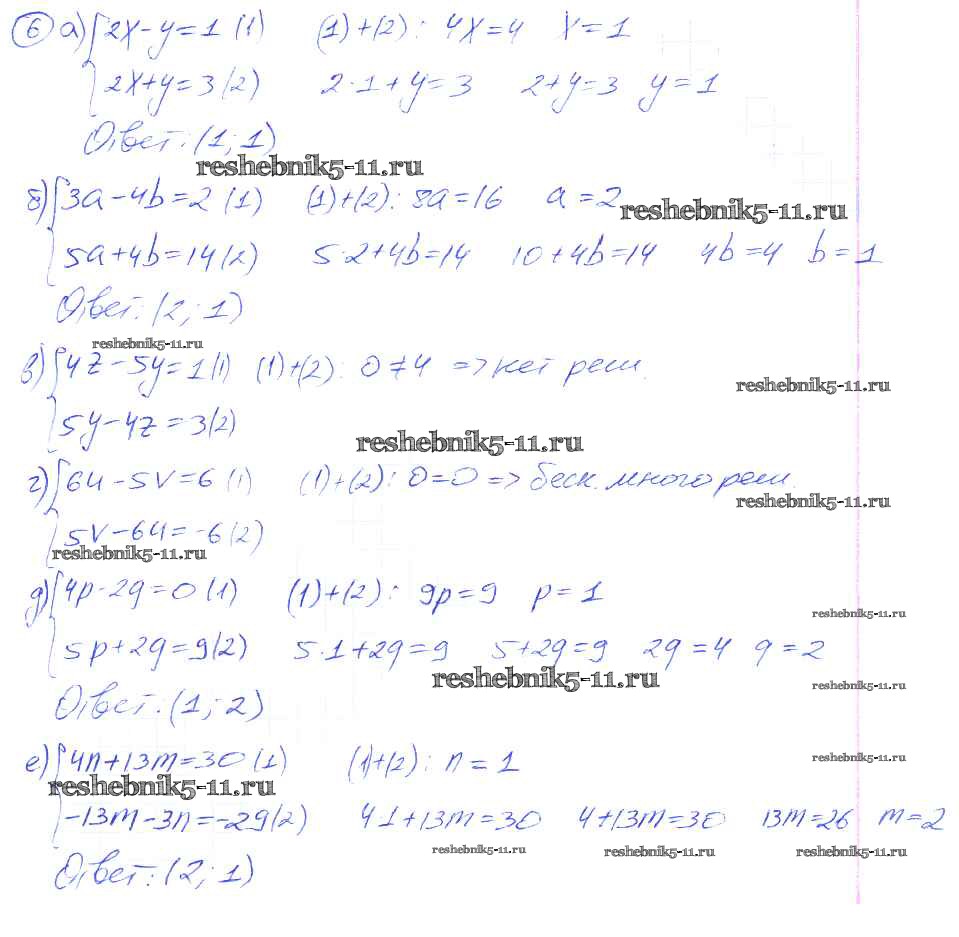 6 а) 2x-y=1 (1) (1)+(2): 4x=4 x=1
2x+y=3 (2) 2·1+y=3 2+y=3 y=1
Ответ: (1; 1)
reshebnik5-11.ru
б) 3a-4b=2 (1) (1)+(2): 8a=16 a=2
reshebnik5-11.ru
5a+4b=14 (2) 5·2+4b=14 10+4b=14 4b=4 b=1
Ответ: (2; 1)
reshebnik5-11.ru
в) 4z-5y=1 (1) (1)+(2): 0≠4 => нет реш.
reshebnik5-11.ru
5y-4z=3 (2)
reshebnik5-11.ru
г) 6u-5v=6 (1) (1)+(2): 0=0 => беск. много реш.
reshebnik5-11.ru
5v-6u=-6 (2)
reshebnik5-11.ru
д) 4p-2q=0 (1) (1)+(2): 9p=9 p=1
reshebnik5-11.ru
5p+2q=9 (2) 5·1+2q=9 5+2q=9 2q=4 q=2
reshebnik5-11.ru
reshebnik5-11.ru
Ответ: (1; 2)
е) 4n+13m=30 (1) (1)+(2): n=1
reshebnik5-11.ru
reshebnik5-11.ru
-13m-3n=-29 (2) 4·1+13m=30 4+13m=30 13m=26 m=2
reshebnik5-11.ru
reshebnik5-11.ru
reshebnik5-11.ru
Ответ: (2; 1)